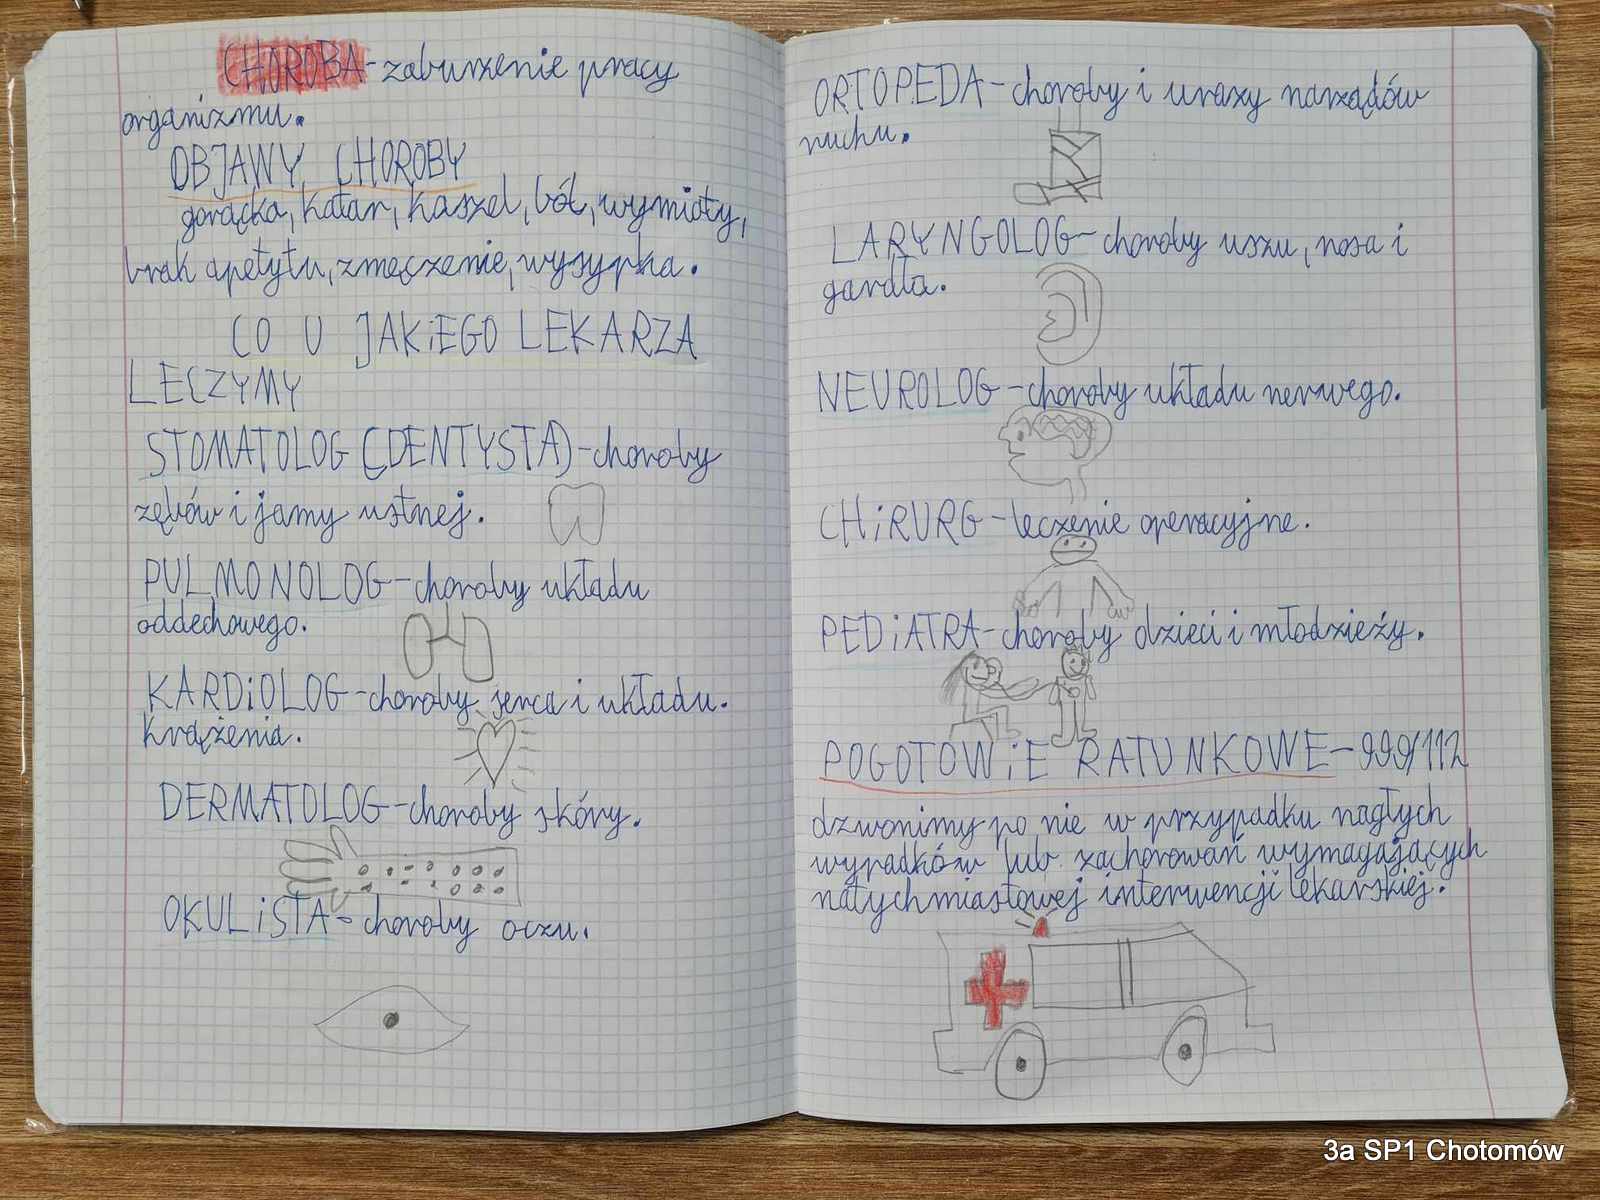 CHOROBA - zaburzenie pracy
organizmu.
OBJAWY CHOROBY
gorączka, katar, kaszel, ból, wymioty,
brak apetytu, zmęczenie, wysypka.
CO U JAKiEGO LEKARZA
LECZYMY
STOMATOLOG (DENTYSTA) - choroby
zębów i jamy ustnej.
PULMONOLOG - choroby układu
oddechowego.
KARDiOLOG - choroby serca i układu.
krążenia.
DERMATOLOG - choroby skóry.
OKULiSTA - choroby oczu.
ORTOPEDA - choroby i urazy narządów
ruchu.
LARYNGOLOG - choroby uszu, nosa i
gardła.
NEUROLOG - choroby układu nerwego.
CHiRURG - leczenie operacyjne.
PEDiATRA - choroby dzieci i młodzieży.
POGOTOWiE RATUNKOWE - 999/112
dzwonimy po nie w przypadku nagłych
wypadków lub zachorowań wymagających
natychmiastowej interwencji lekarskiej.
3a SP1 Chotomów